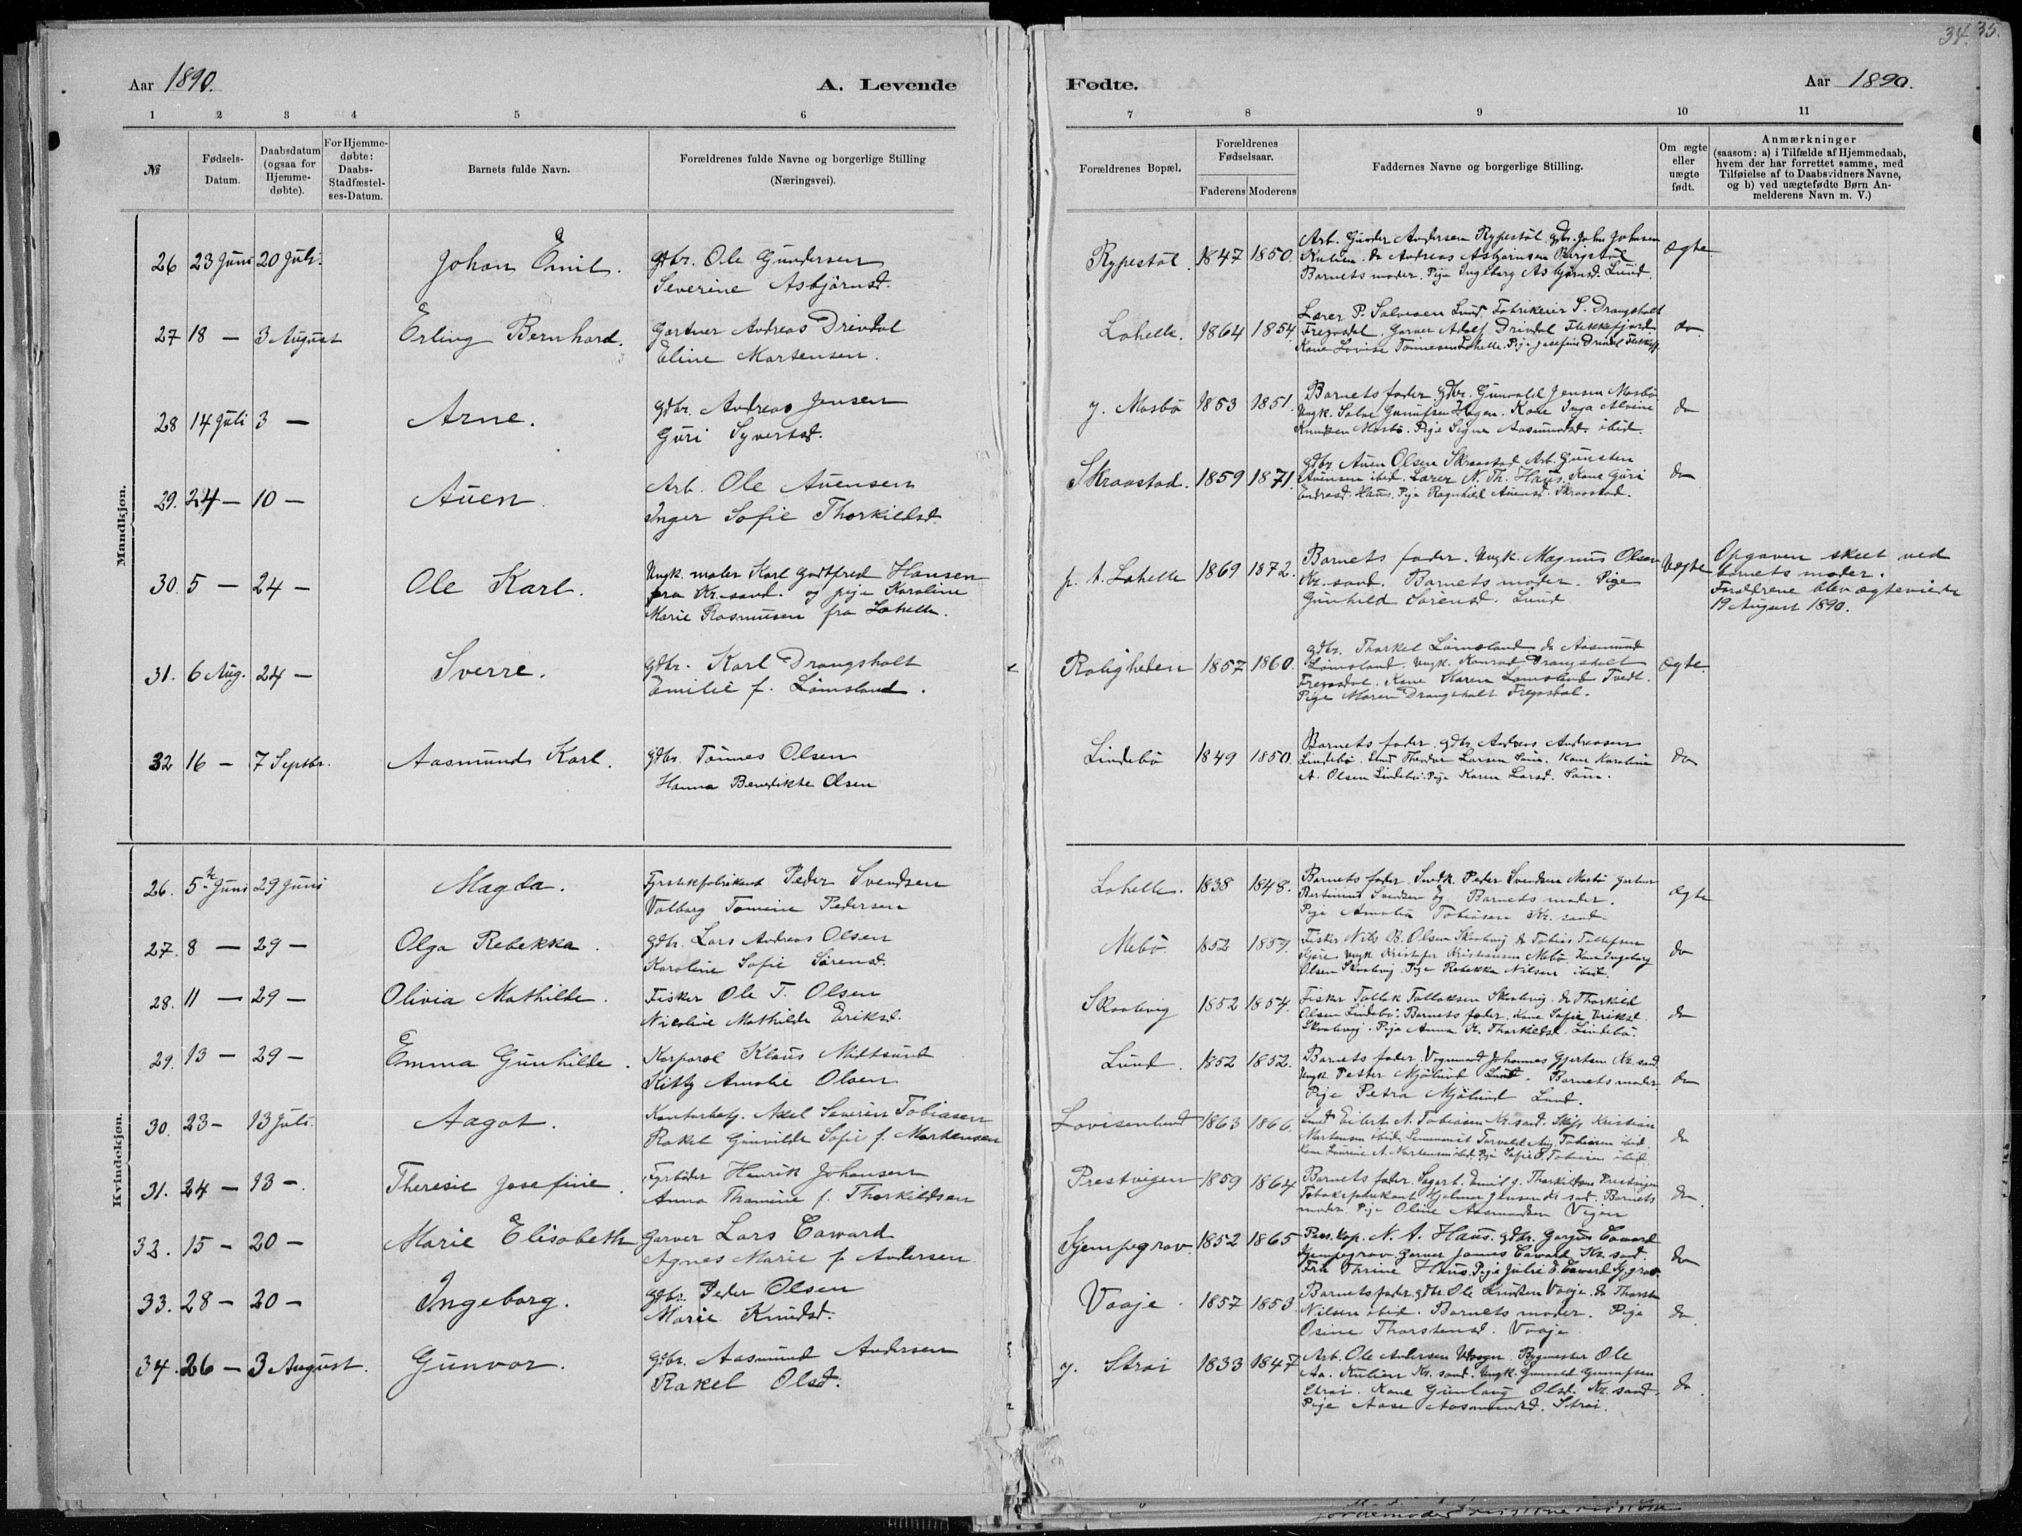 34. 35.
Aar 1890.
A. Levende
Fødte.
Aar 1890.
1 2 3 4 5 6
7 8 9 10 11
№
Fødsels-
Datum.
Daabsdatum
(ogsaa for
Hjemme-
døbte).
For Hjemme-
døbte:
Daabs-
Stadfæstel-
ses-Datum.
Barnets fulde Navn.
Forældrenes fulde Navne og borgerlige Stilling
(Næringsvei).
Forældrenes Bopæl.
Forældrenes
Fødselsaar.
Faderens Moderens
Faddernes Navne og borgerlige Stilling.
Om ægte
eller
uægte
født.
Anmærkninger
(saasom: a) i Tilfælde af Hjemmedaab,
hvem der har forrettet samme, med
Tilføielse af to Daabsvidners Navne,
og b) ved uægtefødte Børn An-
melderens Navn m. V.)
Mandkjøn.
26 23 Juni 20 Juli. Johan Emil. gdbr. Ole Gundersen
Severine Asbjørnsd.
Rypestøl. 1847 1850. Arb. Gunder Andersen Rypestøl, gdbr. John Johnsen
Kulien. do Andreas Asbjørnsen Birgstøl
Barnets moder. Pige Ingeborg Asbjørnsd. Lund.
ægte
27 18 — 3 August Erling Bernhard. Gartner Andreas Drivdal
Eline Mortensen.
Lahelle. 1864 1854. Lærer P. Salvesen Lund Fabrikeier S. Drangsholt
Fregosdal. Garver Adolf Drivdal Flekkefjord
Kone Lovise Tønnesen Lahelle. Pige Josefine Drivdal Flekkefj.
do
28 14 Juli 3 — Arne. gdbr. Andreas Jensen
Guri Syvertsd.
y. Mosbø 1853 1851. Barnets fader gdbr. Gunvald Jensen Mosbø
Ungk. Salve Gunufsen Hagen. Kone Inga Alvine
Knudsen Mosbø. Pige Signe Aasmundsd. ibid.
do
29. 24 — 10 — Auen. Arb. Ole Auensen
Inger Sofie Thorkildsd.
Skraastad. 1859 1871. gdbr. Auen Olsen Skraastad Arb. Gunsten
Auensen ibid. Lærer N. Th. Haus. Kone Guri
Endresd. Haus. Pige Ragnhild Auensd. Skraastad.
do
30. 5 — 24 — Ole Karl. Ungk. maler Karl Godtfred Hansen
fra Kr.sand. og pige Karoline
Marie Rasmussen fra Lahelle.
p. t. Lahelle 1869 1872. Barnets fader. Ungk. Magnus Olsen
Kr.sand. Barnets moder. Pige
Gunhild Sørensd. Lund
Uægte
Opgaven skeet ved
barnets moder.
Forældrene blev ægteviede
19 August 1890.
31. 6 Aug. 24 — Sverre. gdbr. Karl Drangsholt
Emilie f. Lømsland.
Roligheden 1857 1860. gdbr. Thorkel Lømsland do Aasmund
Lømsland. Ungk. Konrad Drangsholt
Fregosdal. Kone Karen Lømsland Tvedt.
Pige Maren Drangsholt Fregosdal.
ægte
32 16 — 7 Septbr. Aasmund Karl. gdbr. Tønnes Olsen
Hanna Benedikte Olsen
Lindebø 1849 1850. Barnets fader. gdbr. Andreas Andreassen
Lindebø. Theodor Larsen. Kone Karoline
A. Olsen Lindebø. Pige Karen Larsd.
do
Kvindekjøn.
26. 5te Juni 29 Juni Magda. Fyrstikfabrikant Peder Svendsen
Valborg Tomine Pedersen
Lahelle. 1838 1848. Barnets fader. Snedk. Peder Svendsen Mosbø
Bertinius Svendsen og Barnets moder.
Pige Amalia Tobiasen Kr.sand
ægte
27. 8 — 29 — Olga Rebekka. gdbr. Lars Andreas Olsen
Karoline Sofie Sørensd.
Mebø. 1852 1857. Fisker Nils B. Olsen Skaalevig do Tobias Tollefsen
Ungk. Kristofer Kristiansen Mebø. Kone Ingeborg
Olsen Skaalevig. Pige Rebekka Nilsen ibid.
do
28. 11 — 29 — Olivia Mathilde. Fisker Ole T. Olsen
Nicoline Mathilde Eriksd.
Skaalevig 1852 1854. Fisker Tollak Tollaksen Skaalevig. do Thorkild
Olsen Lindebø. Barnets fader. Kone Sofie Eriksd.
Skaalevig. Pige Anna K. Thorkildsd. Lindebø.
do
29. 13 — 29 — Emma Gunhilde. Korporal Klaus Midtsund
Kitty Amalie Olsen
Lund. 1852 1852. Barnets fader. Vognmand Johannes Gjertsen Kr.sand.
Ungk. Petter Mjølund Lund. Barnets moder
Pige Petra Mjølund Lund.
do
30. 23 — 13 Juli. Aagot. Kontorbetj. Axel Severin Tobiasen
Rakel Gunvilde Sofie f. Mortensen
Lovisenlund 1863 1866. Eilert A. Tobiasen Kr.sand. Kristian
Mortensen ibid. Torvald Aug. Tobiasen ibid.
Kone Laurine A. Mortensen ibid. Pige Sofie Tobiasen ibid.
do
31. 24 — 13 —. Theresie Josefine. Fyrbøder Henrik Johansen
Anna Thomine f. Thorkildsen
Prestvigen 1859 1864 Barnets fader. Emil G. Thorkildsen Prestvigen
Tobaksfabrikant Hjalmar Jensen Kr.sand. Barnets
moder. Pige Oline Aasmundsen Vigen
do
32. 15 — 20 — Marie Elisabeth Garver Lars Caward
Agnes Marie f. Andersen
Gjempegrav 1852 1865 Pers. Kap. N. A. Haus. gdbr. Gorjus Caward
Gjempegrav. Garver James Caward Kr.sand.
Frk Thrine Haus. Pige Julie E. Caward Gj.grav.
do
33. 28 — 20 — Ingeborg. gdbr. Peder Olsen
Marie Knudsd.
Vraaje. 1857 1853 Barnets fader. gdbr. Ole Knudsen Vraaje. do Thorsten
Nilsen ibid. Barnets moder. Pige
Osine Thorstensd. Vraaje.
do
34. 26 — 3 August. Gunvor. gdbr. Aasmund Andersen
Rakel Olsd.
y. Strai 1833 1847 Arb. Ole Andersen. Bygmester Ole
Aa. Kulien Kr.sand. Ungk. Gunvald Gunufsen
Strai. Kone Gunlaug Olsd. Kr.sand.
Pige Aase Aasmundsd. Strai.
do